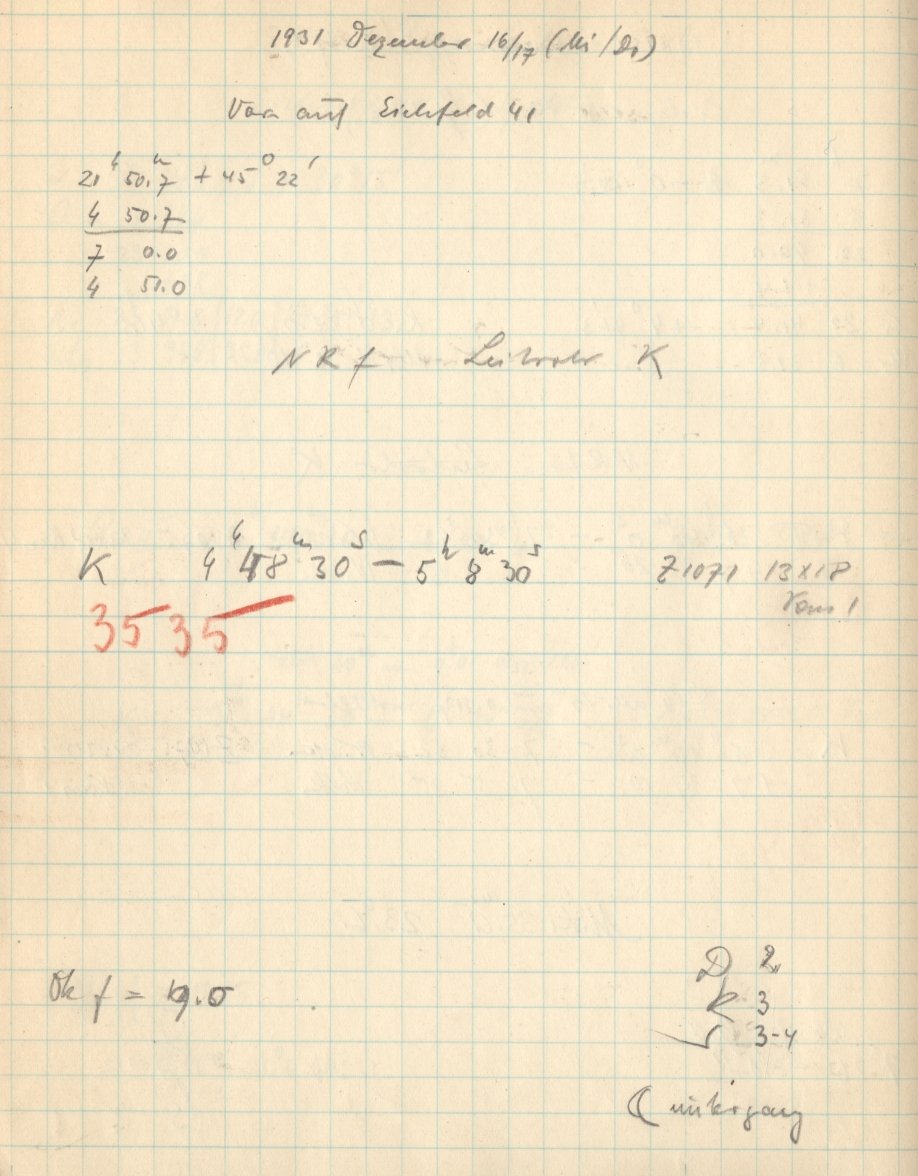 1931 Dezember 16/17 (Mi/Do)
Var auf Eichfeld 41
21ʰ 50.ᵐ7 + 45° 22'
4 50.7
7 0.0
4 51.0
NRf Leitrohr K
K 4ʰ 48ᵐ 30ˢ — 5ʰ 8ᵐ 30ˢ Z1071 13x18
35 35
Ok f = 19.0
D 2
R 3
3-4
☾ untergang